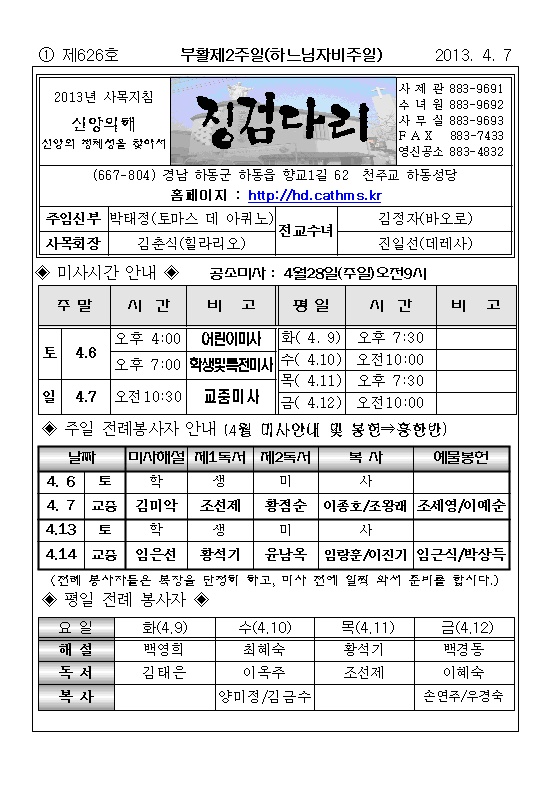 ① 제626호 부활제2주일(하느님자비주일) 2013. 4. 7
2013년 사목지침
신앙의해
신앙의 정체성을 찾아서
징검다리
사 제 관 883-9691
수 녀 원 883-9692
사 무 실 883-9693
F A X 883-7433
영신공소 883-4832
(667-804) 경남 하동군 하동읍 향교1길 62 천주교 하동성당
홈페이지 : http://hd.cathms.kr
주임신부 박태정(토마스 데 아퀴노) 전교수녀 김정자(바오로)
사목회장 김춘식(힐라리오) 진일선(데레사)
◈ 미사시간 안내 ◈ 공소미사 : 4월28일(주일)오전9시
주 말 시 간 비 고 평 일 시 간 비 고
토 4.6 오후 4:00 어린이미사 화( 4. 9) 오후 7:30
오후 7:00 학생및특전미사 수( 4.10) 오전10:00
일 4.7 오전10:30 교중미사 목( 4.11) 오후 7:30
금( 4.12) 오전10:00
◈ 주일 전례봉사자 안내 (4월 미사안내 및 봉헌⇒흥한반)
날짜 미사해설 제1독서 제2독서 복 사 예물봉헌
4. 6 토 학 생 미 사
4. 7 교중 김미악 조선제 황점순 이종호/조왕래 조세영/이예순
4.13 토 학 생 미 사
4.14 교중 임은선 황석기 윤남옥 임랑훈/이진기 임근식/박상득
(전례 봉사자들은 복장을 단정히 하고, 미사 전에 일찍 와서 준비를 합시다.)
◈ 평일 전례 봉사자 ◈
요 일 화(4.9) 수(4.10) 목(4.11) 금(4.12)
해 설 백영희 최혜숙 황석기 백경동
독 서 김태은 이옥주 조선제 이혜숙
복 사 양미정/김금수 손연주/우경숙